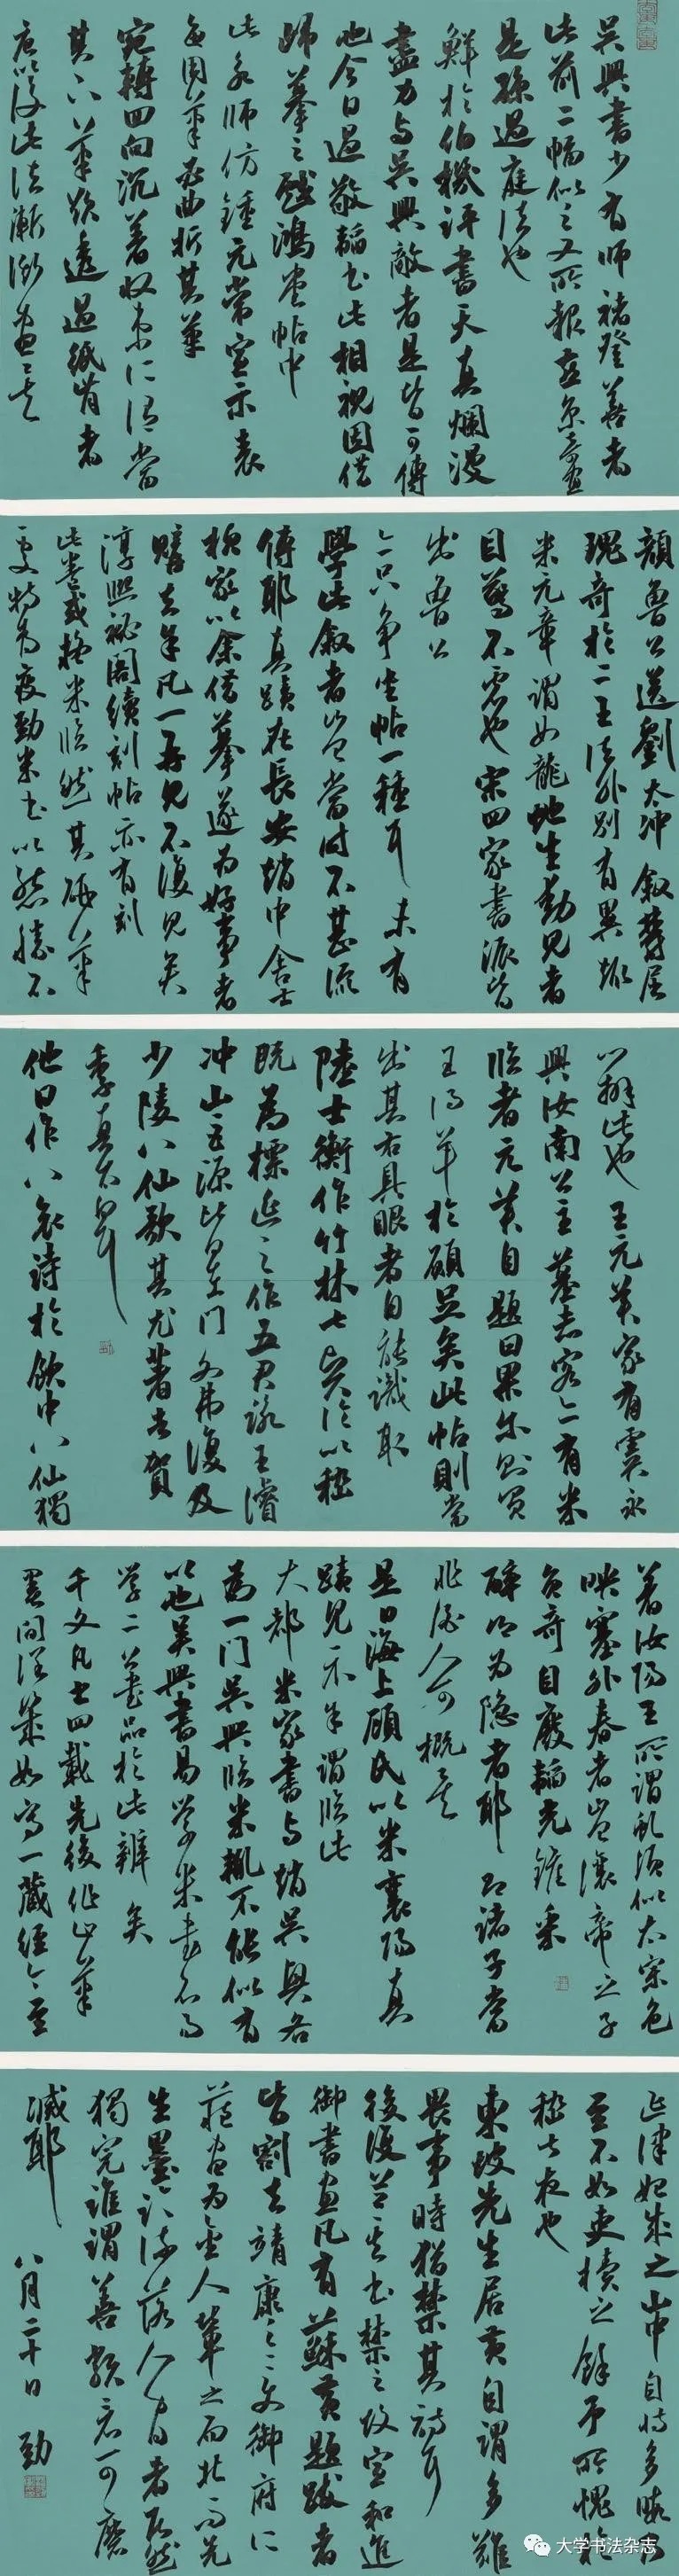 吴興書少有師褚登善者
此前二幅似之又所報
是孫過庭法也
鮮於伯機評書天真爛漫
盡力与吴興敵者是皆可傳
也今日過敬韜出此相視因借
歸摹之戲鴻堂帖中
此永師仿鍾元常宣示表
每用筆必曲折其筆
宛轉四向沉着收束所謂當
其下筆欲透過紙背者
唐以後此法漸漸盡矣
顏魯公送劉太冲叙鬱屈
瑰奇於二王法外別有異趣
米元章謂如龍蛇生動見者
目驚不虛也宋四家書派皆
出魯公
亦只争坐帖一種耳未有
學此叙者豈當時不甚流
傳耶真蹟在長安趙中舍士
楨家以余借摹遂為好事者
購去余凡一再見不復見矣
淳熙秘閣續刻帖亦有刻
此卷或疑米臨然其破筆
處特為瘦勁米書以態勝不
辦此也王元美家有虞永
興汝南公主墓志客亦有米
臨者元美自題曰果尔則買
王得羊於願足矣此帖則當
出其右具眼者自能識取
陸士衡作竹林七贤論以嵇
阮為標延之作五君詠王濬
冲山巨源比皇門外弗復及
少陵八仙歌其尤著者賀
季真
他日作八哀詩於飲中八仙獨
著汝陽王所謂虬須似太宗色
映塞外春者豈讓帝之子
負奇自廢韜光鏟采
醉以為隱者耶 即諸子當
非酒人可概矣
是日海上顧氏以米襄陽真
蹟見示余謂臨此
大都米家書与趙吴興各
為一門吴興臨米輒不能似有
以也吴興書易学米書不易
学二公書品於此辨矣
千文凡書四載先後作止筆
墨間澤茂如寫一藏經今
延津妃成之山中自恃多暇
至不如吏牘之餘予所愧於
嵇七夜也
東坡先生居黃自謂多難
畏事時猶禁其詩耳
後復并其書禁之政宣和進
御書畫凡有蘇黃題跋者
皆割去靖康之變御府之
藏盡為金人輦之而北而先
生墨跡流落人間者居然
獨完誰謂善類名可磨
滅耶 八月二十日 勁
大学书法杂志